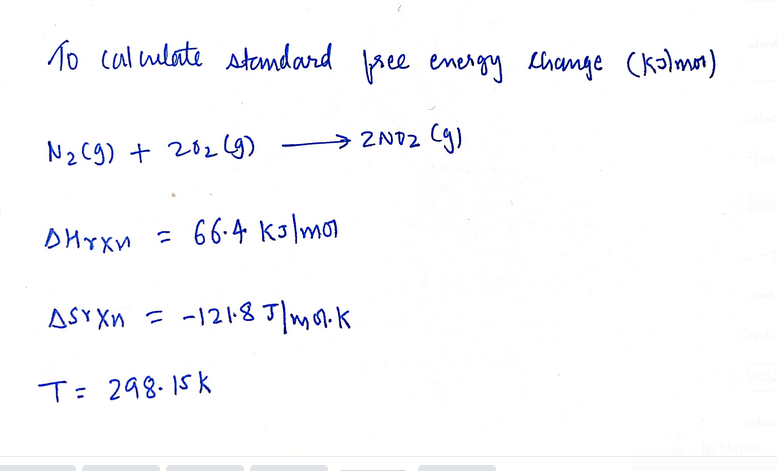 To calculate standard free energy change (KJ/mol)
N2(g) + 2O2(g) ⟶ 2NO2(g)
ΔHrxn = 66.4 KJ/mol
ΔSrxn = -121.8 J/mol.K
T = 298.15K